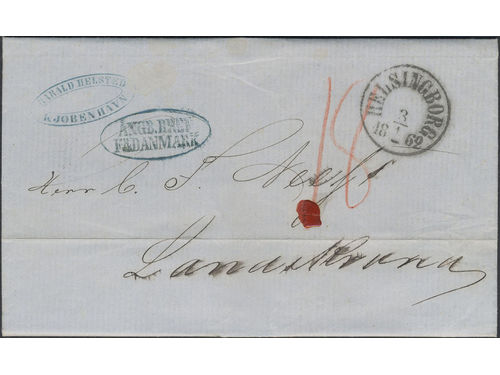 HARALD HELSTED
KJÖBENHAVN
ÅNGB. BREF
FR. DANMARK
HELSINGBORG
3
18 1 62
18
Herr C. F.
Landskrona